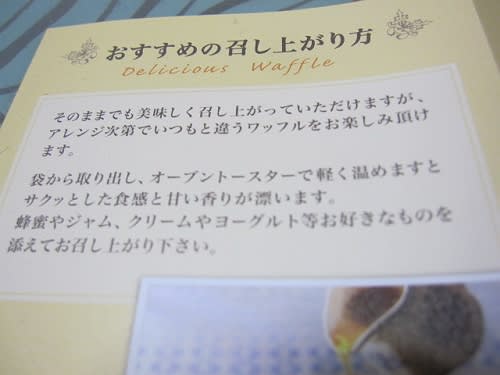 おすすめの召し上がり方
Delicious Waffle
そのままでも美味しく召し上がっていただけますが、
アレンジ次第でいつもと違うワッフルをお楽しみ頂け
ます。
袋から取り出し、オーブントースターで軽く温めますと
サクッとした食感と甘い香りが漂います。
蜂蜜やジャム、クリームやヨーグルト等お好きなものを
添えてお召し上がり下さい。